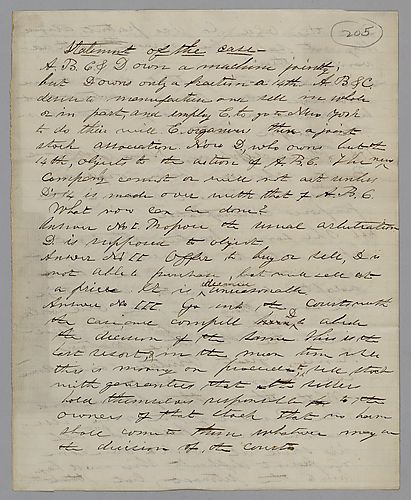 205
Statement of the case –
A B. C & D own a machine jointly;
but D owns only a fraction a 4th. A B & C
desire to manufacture and sell in whole
or in part, and employ E to go to New York
to do this with E. organises then a joint
stock association. Now D, who owns but the
4th, objects to the action of A B. C. The new
Company consist or will not act unless
D's is made over with that of A B. C
What now can be done?
Answer No I Propose the usual arbitration
D. is supposed to object
Answer No II Offer to buy or sell, D is
not able to purchase, but will sell at
a price. It is deemed unreasonable
Answer No III Go into the Courts with
the case and compell D to abide
the decision of the same This is the
last resort, in the mean time while
this is moving on proceed to sell stock
with guaranties that the sellers
hold themselves responsible to the
owners of that stock that no harm
shall come to them whatever may be
the decision of the Courts